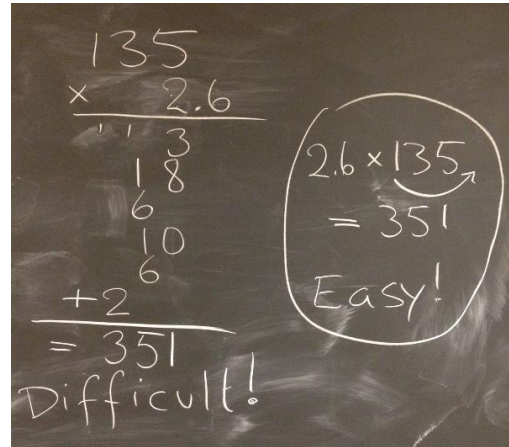 135
× 2.6
' ' 3
1 8
6
10
6
+ 2
= 351
Difficult!
2.6 × 135
= 351
Easy!